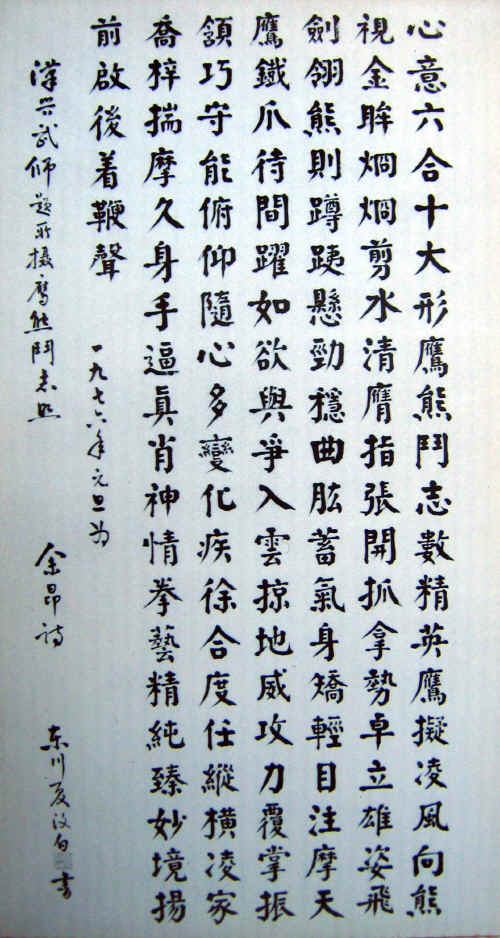 心意六合十大形鷹熊鬥志數精英鷹擬凌風向熊
視金眸烱烱剪水清膺指張開抓拿勢卓立雄姿飛
劍翎熊則蹲跠懸勁穩曲肱蓄氣身矯輕目注摩天
鷹鐵爪待間躍如欲與爭入雲掠地威攻力覆掌振
頷巧守能俯仰隨心多變化疾徐合度任縱橫凌家
喬梓揣摩久身手逼眞肖神情拳藝精純臻妙境揚
前啟後着鞭聲
一九七六年元旦为
漢兴武师题所摄鹰熊鬥志照
余昂詩
东川夏汶白書